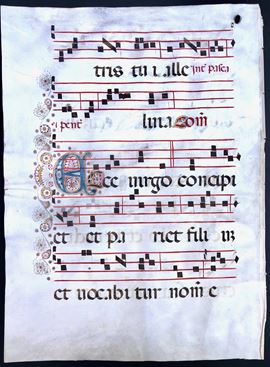 tris tui alle
luia com
Ecce uirgo concipi
et et pa riet fili um
et uocabi tur nom e